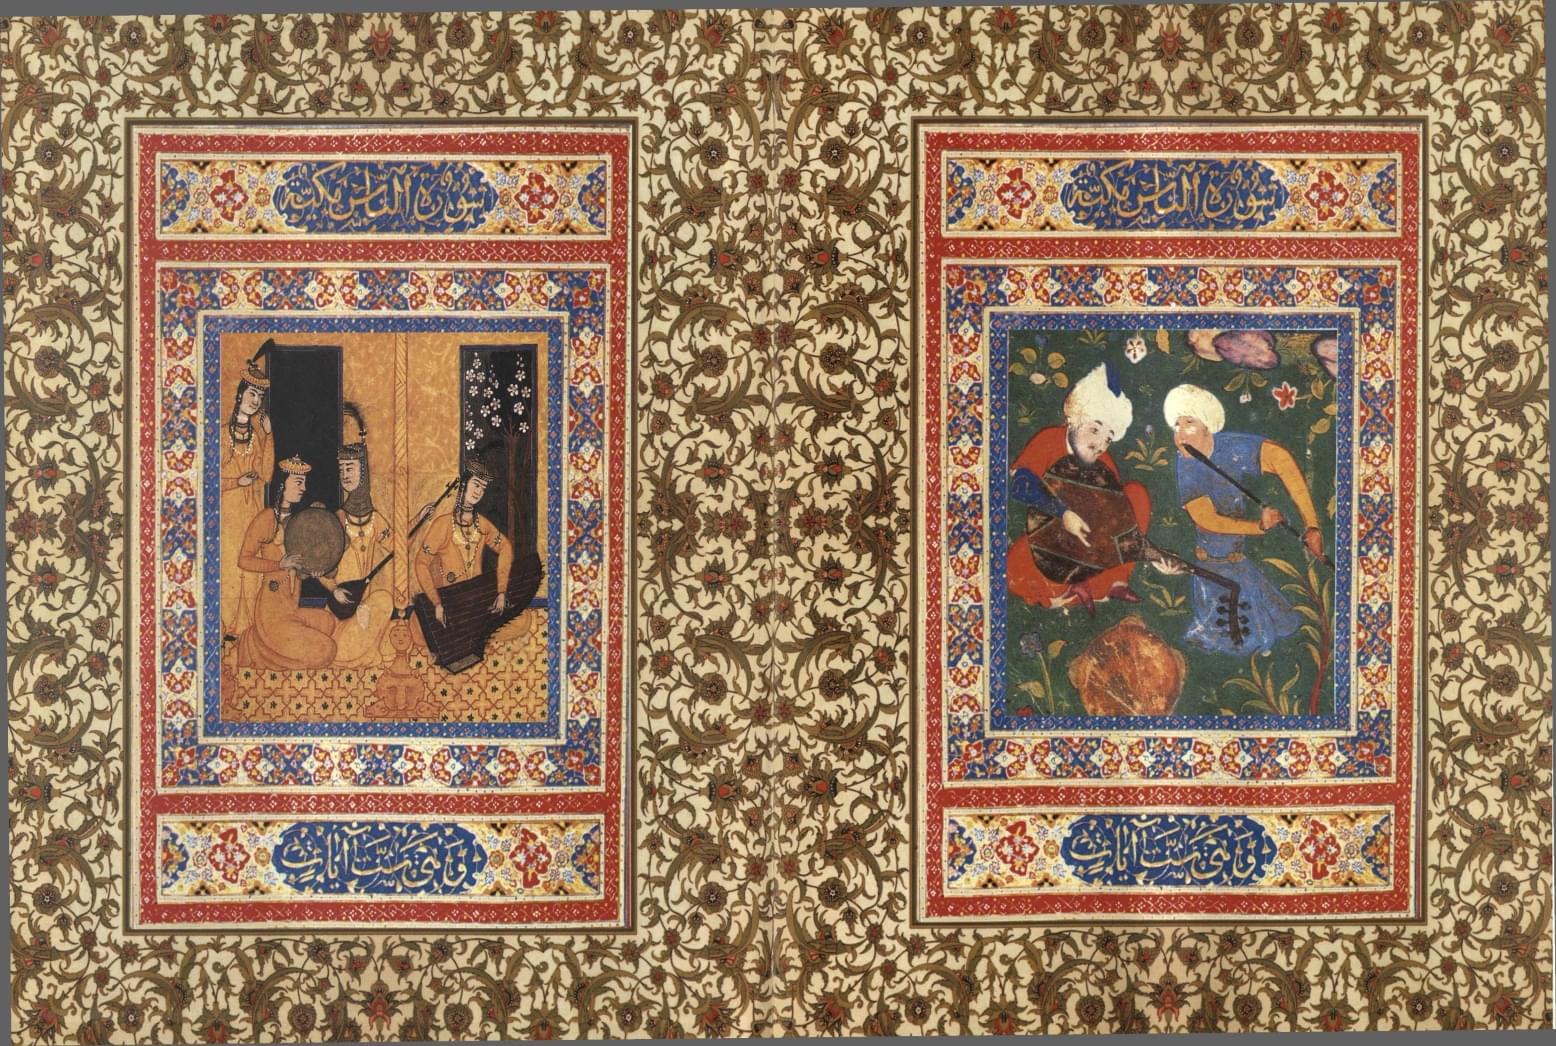 سورة الناس مكية
وهی ست آیات
سورة الناس مكية
وهی ست آیات